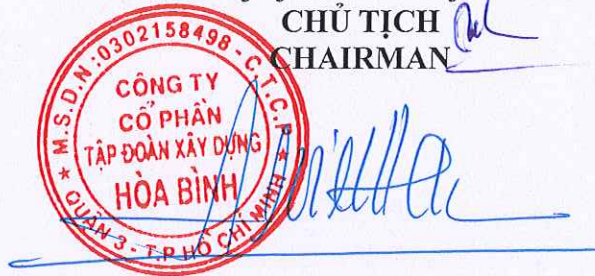 CHỦ TỊCH
CHAIRMAN
M.S.D.N:0302158498-C.T.C.P
CÔNG TY
CỔ PHẦN
TẬP ĐOÀN XÂY DỰNG
HÒA BÌNH
QUẬN 3 - T.P HỒ CHÍ MINH